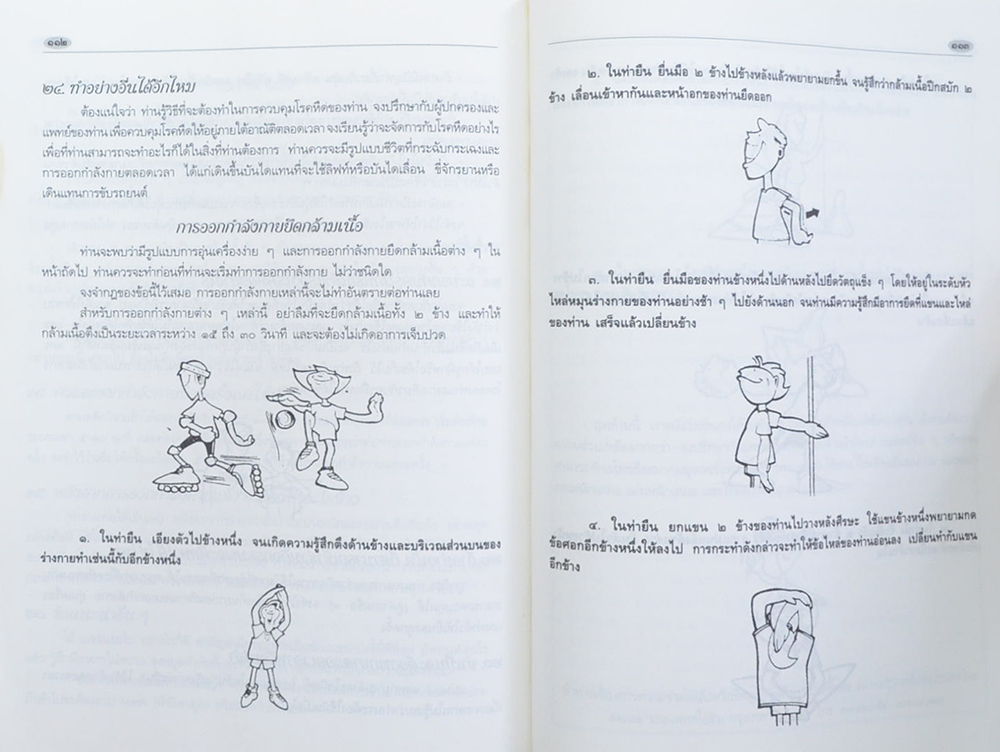 ๑๑๒
๒๔. ทำอย่างอื่นได้อีกไหม
ต้องแน่ใจว่า ท่านรู้วิธีที่จะต้องทำในการควบคุมโรคหืดของท่าน จงปรึกษากับผู้ปกครองและ
แพทย์ของท่าน เพื่อควบคุมโรคหืดให้อยู่ภายใต้อาณัติตลอดเวลา จงเรียนรู้ว่าจะจัดการกับโรคหืดอย่างไร
เพื่อที่ท่านสามารถจะทำอะไรก็ได้ในสิ่งที่ท่านต้องการ ท่านควรจะมีรูปแบบชีวิตที่กระฉับกระเฉงและ
การออกกำลังกายตลอดเวลา ได้แก่เดินขึ้นบันไดแทนที่จะใช้ลิฟท์หรือบันไดเลื่อน ขี่จักรยานหรือ
เดินแทนการขับรถยนต์
การออกกำลังกายยืดกล้ามเนื้อ
ท่านจะพบว่ามีรูปแบบการอุ่นเครื่องง่าย ๆ และการออกกำลังกายยืดกล้ามเนื้อต่าง ๆ ใน
หน้าถัดไป ท่านควรจะทำก่อนที่ท่านจะเริ่มทำการออกกำลังกาย ไม่ว่าชนิดใด
จงจำกฎของข้อนี้ไว้เสมอ การออกกำลังกายเหล่านี้จะไม่ทำอันตรายต่อท่านเลย
สำหรับการออกกำลังกายต่าง ๆ เหล่านี้ อย่าลืมที่จะยืดกล้ามเนื้อทั้ง ๒ ข้าง และทำให้
กล้ามเนื้อตึงเป็นระยะเวลาระหว่าง ๑๕ ถึง ๓๐ วินาที และจะต้องไม่เกิดอาการเจ็บปวด
๑. ในท่ายืน เอียงตัวไปข้างหนึ่ง จนเกิดความรู้สึกตึงด้านข้างและบริเวณส่วนบนของ
ร่างกายทำเช่นนี้กับอีกข้างหนึ่ง
๑๑๓
๒. ในท่ายืน ยื่นมือ ๒ ข้างไปข้างหลังแล้วพยายามยกขึ้น จนรู้สึกว่ากล้ามเนื้อปีกสบัก ๒
ข้าง เลื่อนเข้าหากันและหน้าอกของท่านยืดออก
๓. ในท่ายืน ยื่นมือของท่านข้างหนึ่งไปด้านหลังไปยึดวัตถุแข็ง ๆ โดยให้อยู่ในระดับหัว
ไหล่หมุนร่างกายของท่านอย่างช้า ๆ ไปยังด้านนอก จนท่านมีความรู้สึกมีอาการยืดที่แขนและไหล่
ของท่าน เสร็จแล้วเปลี่ยนข้าง
๔. ในท่ายืน ยกแขน ๒ ข้างของท่านไปวางหลังศีรษะ ใช้แขนข้างหนึ่งพยายามกด
ข้อศอกอีกข้างหนึ่งให้ลงไป การกระทำดังกล่าวจะทำให้ข้อไหล่ของท่านอ่อนลง เปลี่ยนทำกับแขน
อีกข้าง